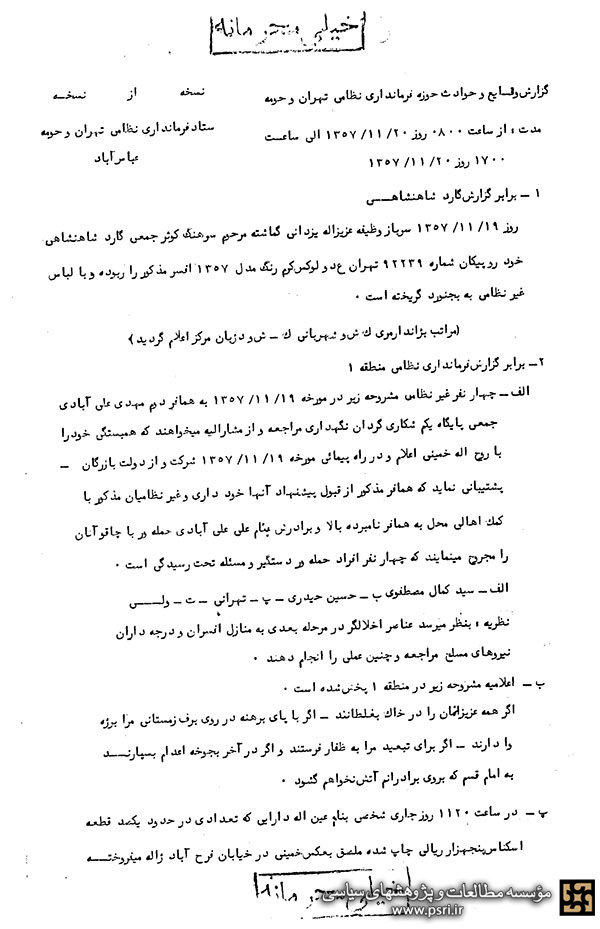 خیلی محرمانه
گزارش وقایع و حوادث حوزه فرمانداری نظامی تهران و حومه
نسخه از نسخه
مدت : از ساعت ۰۸۰۰ روز ۱۳۵۷/۱۱/۲۰ الی ساعت
ستاد فرمانداری نظامی تهران و حومه
۱۷۰۰ روز ۱۳۵۷/۱۱/۲۰
عباس آباد
۱ ـ برابر گزارش گارد شاهنشاهی
روز ۱۳۵۷/۱۱/۱۹ سرباز وظیفه عزیزاله یزدانی گماشته مرحیم سرهنگ کوثر جمعی گارد شاهنشاهی
خود رو پیکان شماره ۹۲۲۳۹ تهران ع د لوکس کرم رنگ مدل ۱۳۵۷ افسر مذکور را ربوده و با لباس
غیر نظامی به بجنورد گریخته است .
(مراتب بژاندارمری ك ش و شهربانی ك ـ ش و دژبان مرکز اعلام گردید)
۲ـ برابر گزارش فرمانداری نظامی منطقه ۱
الف ـ چهار نفر غیر نظامی مشروحه زیر در مورخه ۱۳۵۷/۱۱/۱۹ به همافر دوم مهدی علی آبادی
جمعی پایگاه یکم شکاری گردان نگهداری مراجعه و از مشارالیه میخواهند که همبستگی خود را
با روح اله خمینی اعلام و در راه پیمائی مورخه ۱۳۵۷/۱۱/۱۹ شرکت و از دولت بازرگان ـ
پشتیبانی نماید که همافر مذکور از قبول پیشنهاد آنها خود داری و غیر نظامیان مذکور با
کمك اهالی محل به همافر نامبرده بالا و برادرش بنام علی علی آبادی حمله ور با چاقو آنان
را مجروح مینمایند که چهار نفر افراد حمله ور دستگیر و مسئله تحت رسیدگی است .
الف ـ سید کمال مصطفوی ب ـ حسین حیدری ـ پ ـ تهرانی ـ ت ـ ولی
نظریه : بنظر میرسد عناصر اخلالگر در مرحله بعدی به منازل افسران و درجه داران
نیروهای مسلح مراجعه و چنین عملی را انجام دهند .
ب ـ اعلامیه مشروحه زیر در منطقه ۱ پخش شده است .
اگر همه عزیزانمان را در خاك بغلطانند ـ اگر با پای برهنه در روی برف زمستانی مرا برژه
وا دارند ـ اگر برای تبعید مرا به ظفار فرستند و اگر در آخر بجوخه اعدام بسپارند
به امام قسم که بروی برادرانم آتش نخواهم گشود .
پ ـ در ساعت ۱۱۲۰ روز جاری شخصی بنام عین اله دارایی که تعدادی در حدود یکصد قطعه
اسکناس پنجهزار ریالی چاپ شده ملصق بعکس خمینی در خیابان فرح آباد ژاله میفروخته
خیلی محرمانه
مؤسسه مطالعات و پژوهشهای سیاسی
www.psri.ir